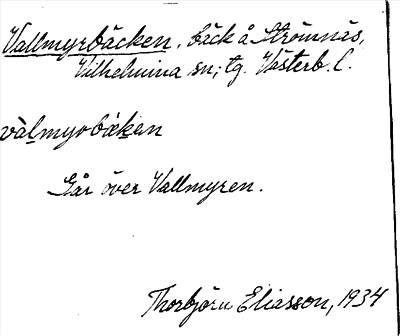 Vallmyrbäcken, bäck å Strömnäs,
Vilhelmina sn; tg. Västerb. l.
vàlmyrbäken
Går över Vallmyren.
Thorbjörn Eliasson, 1934